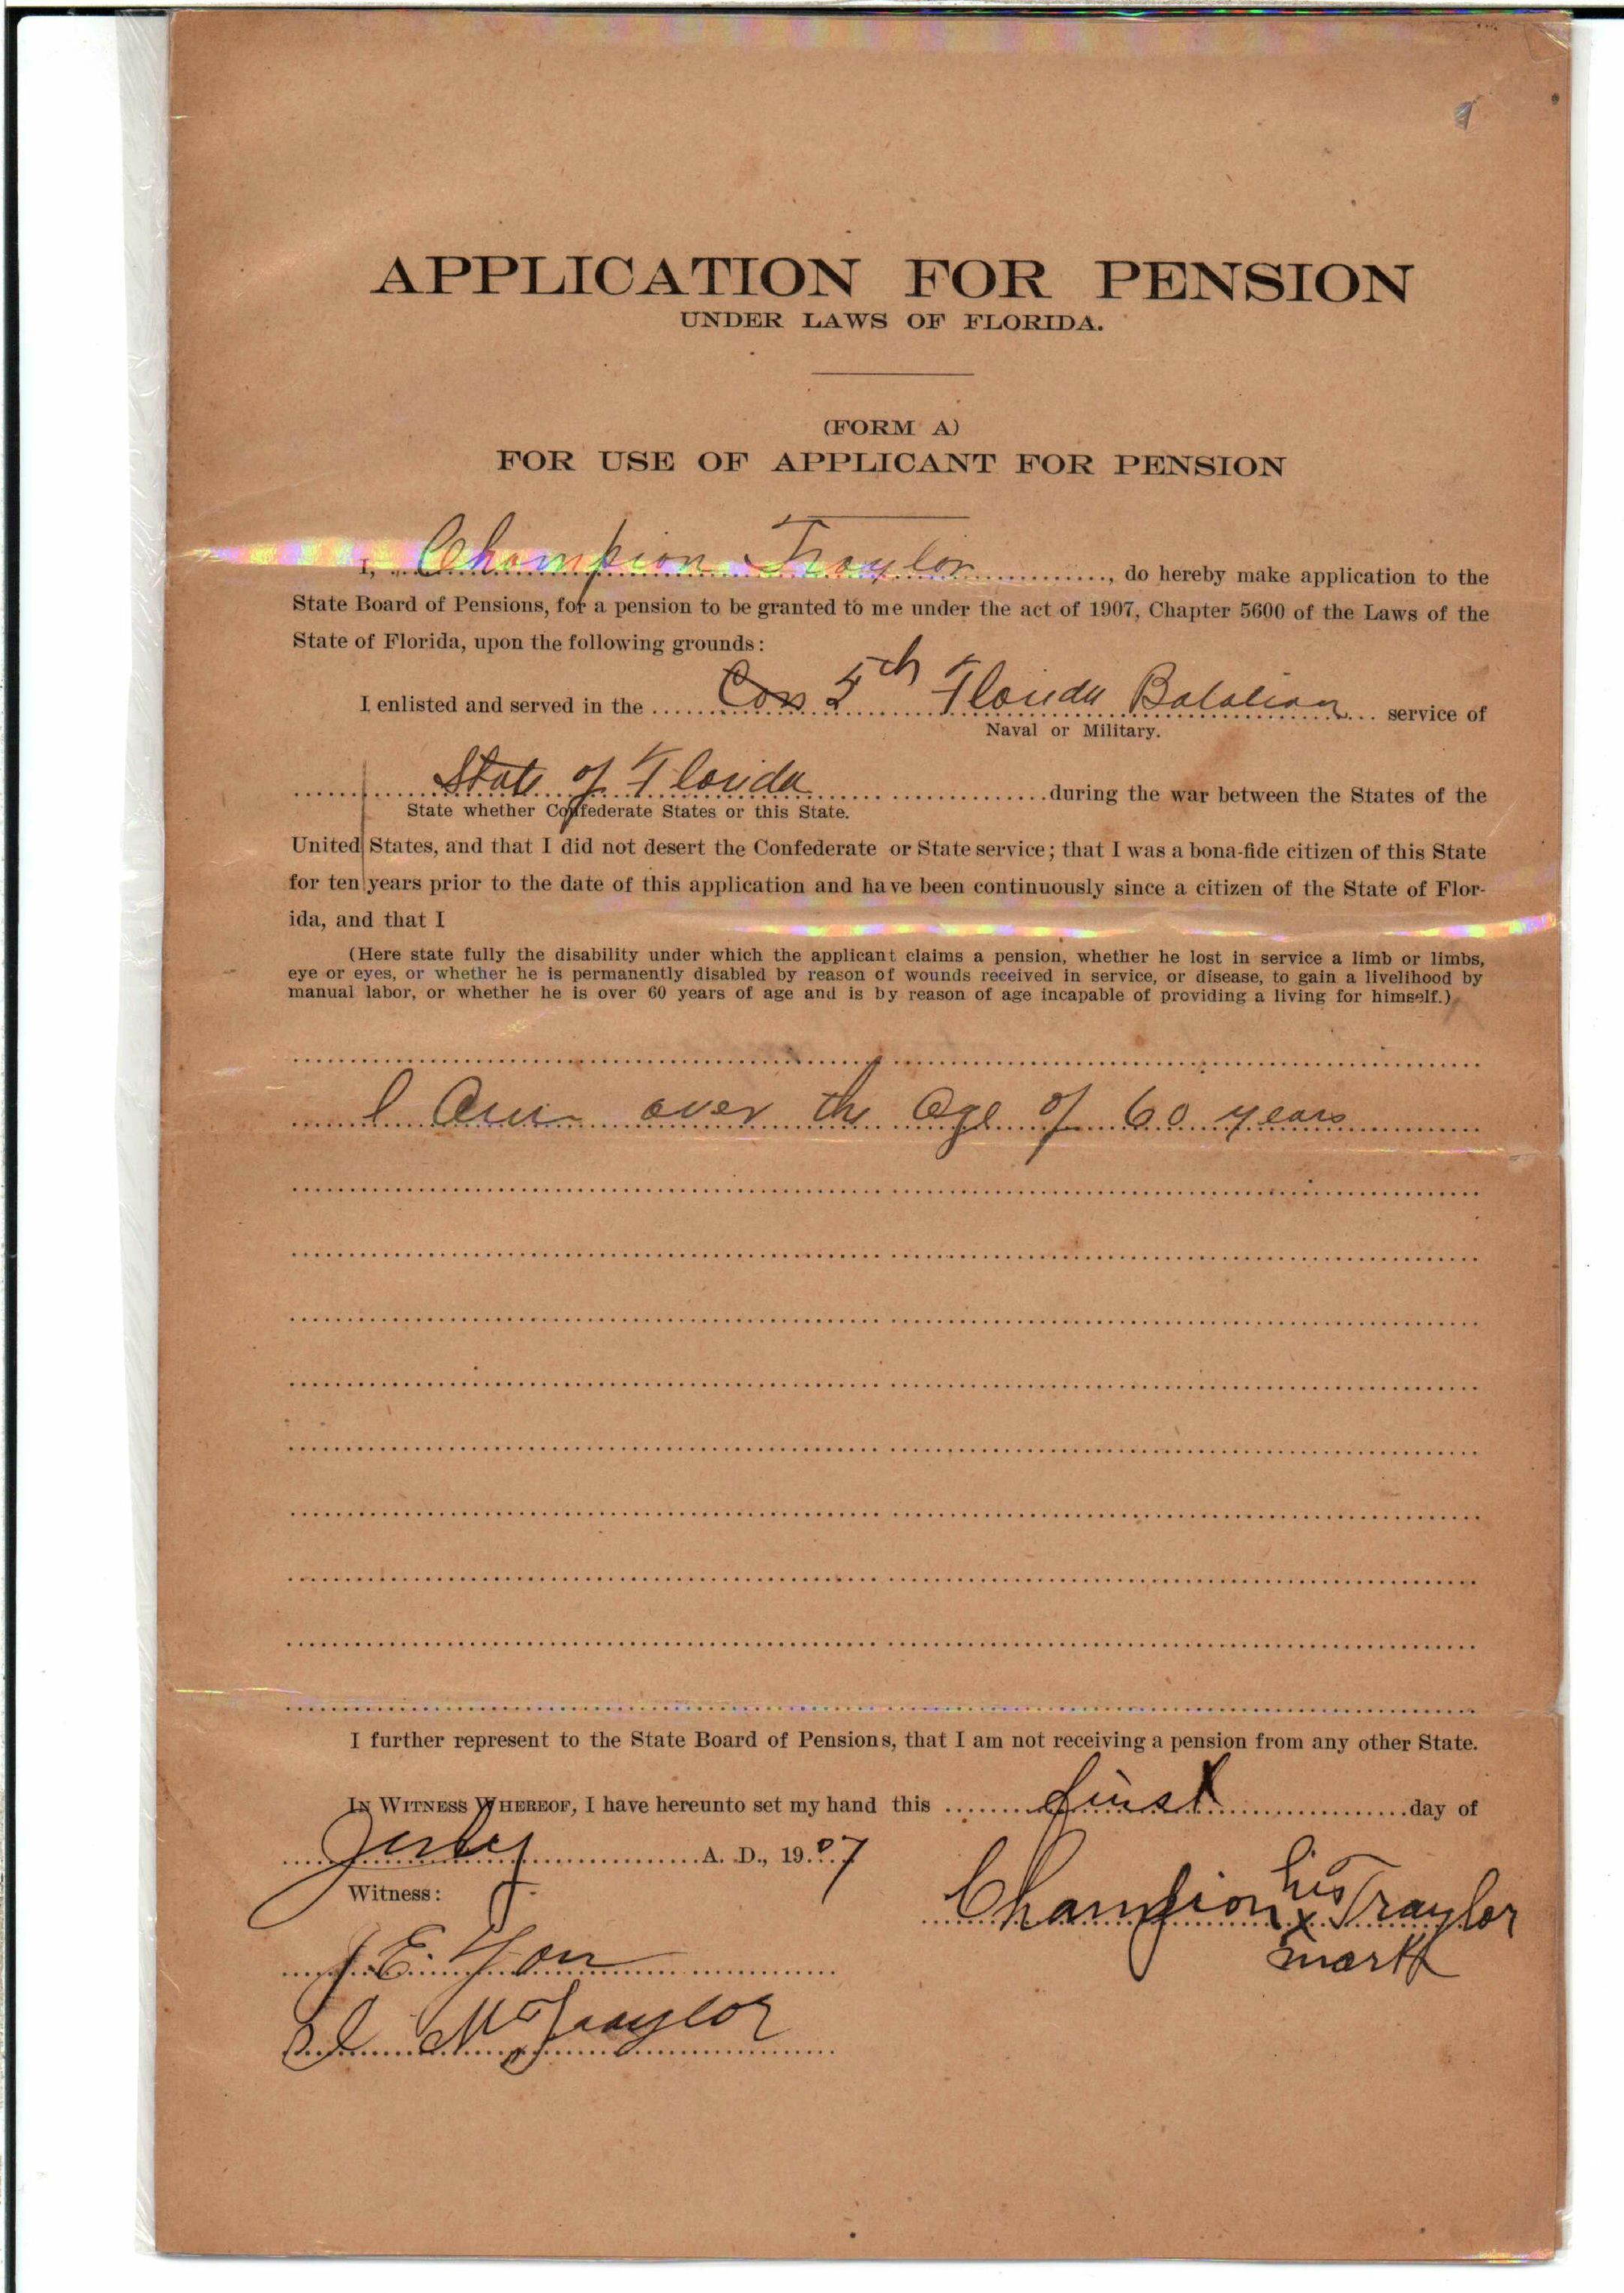 APPLICATION FOR PENSION
UNDER LAWS OF FLORIDA.
(FORM A)
FOR USE OF APPLICANT FOR PENSION
I, Champion Traylor, do hereby make application to the
State Board of Pensions, for a pension to be granted to me under the act of 1907, Chapter 5600 of the Laws of the
State of Florida, upon the following grounds:
I enlisted and served in the 5th Florida Batalian service of
Naval or Military.
State of Florida during the war between the States of the
State whether Confederate States or this State.
United States, and that I did not desert the Confederate or State service; that I was a bona-fide citizen of this State
for ten years prior to the date of this application and have been continuously since a citizen of the State of Flor-
ida, and that I
(Here state fully the disability under which the applicant claims a pension, whether he lost in service a limb or limbs,
eye or eyes, or whether he is permanently disabled by reason of wounds received in service, or disease, to gain a livelihood by
manual labor, or whether he is over 60 years of age and is by reason of age incapable of providing a living for himself.)
I Am over the Age of 60 years
I further represent to the State Board of Pensions, that I am not receiving a pension from any other State.
IN WITNESS WHEREOF, I have hereunto set my hand this first day of
July A. D., 1907
Witness:
his
Champion x Traylor
mark
J. E. Yon
McTraylor